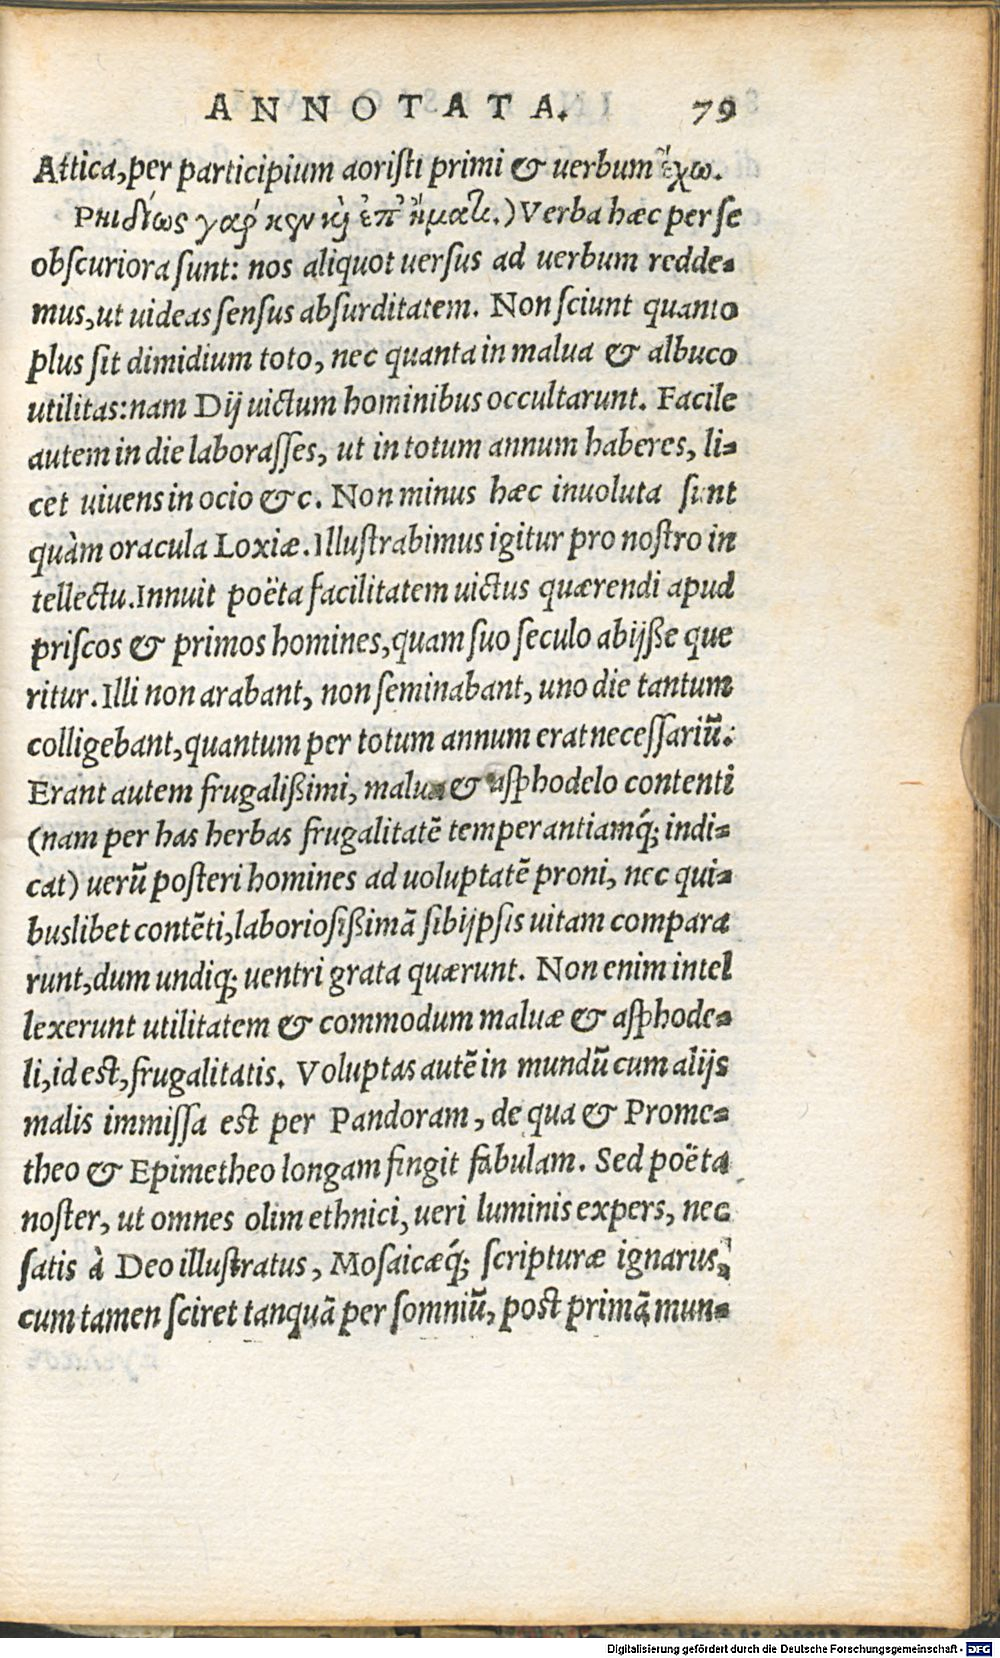 ANNOTATA. 79
Attica, per participium aoristi primi & uerbum ἔχω.
Ρηιδίως γάρ κεν κỳ ἐπ᾽ ἤματι.) Verba hæc per se
obscuriora sunt: nos aliquot uersus ad uerbum redde-
mus, ut uideas sensus absurditatem. Non sciunt quanto
plus sit dimidium toto, nec quanta in malua & albuco
utilitas: nam Dij uictum hominibus occultarunt. Facile
autem in die laborasses, ut in totum annum haberes, li-
cet uiuens in ocio &c. Non minus hæc inuoluta sunt
quàm oracula Loxiæ. Illustrabimus igitur pro nostro in
tellectu. Innuit poëta facilitatem uictus quærendi apud
priscos & primos homines, quam suo seculo abijsse que
ritur. Illi non arabant, non seminabant, uno die tantum
colligebant, quantum per totum annum erat necessariū.
Erant autem frugalißimi, malua & asphodelo contenti
(nam per has herbas frugalitatē temperantiamq́; indi-
cat) uerū posteri homines ad uoluptatē proni, nec qui-
buslibet contēti, laboriosißimā sibijpsis uitam compara
runt, dum undiq; uentri grata quærunt. Non enim intel
lexerunt utilitatem & commodum maluæ & asphode-
li, id est, frugalitatis. Voluptas autē in mundū cum alijs
malis immissa est per Pandoram, de qua & Prome-
theo & Epimetheo longam fingit fabulam. Sed poëta
noster, ut omnes olim ethnici, ueri luminis expers, nec
satis à Deo illustratus, Mosaicæq́; scripturæ ignarus,
cum tamen sciret tanquā per somniū, post primā mun-
Digitalisierung gefördert durch die Deutsche Forschungsgemeinschaft - DFG